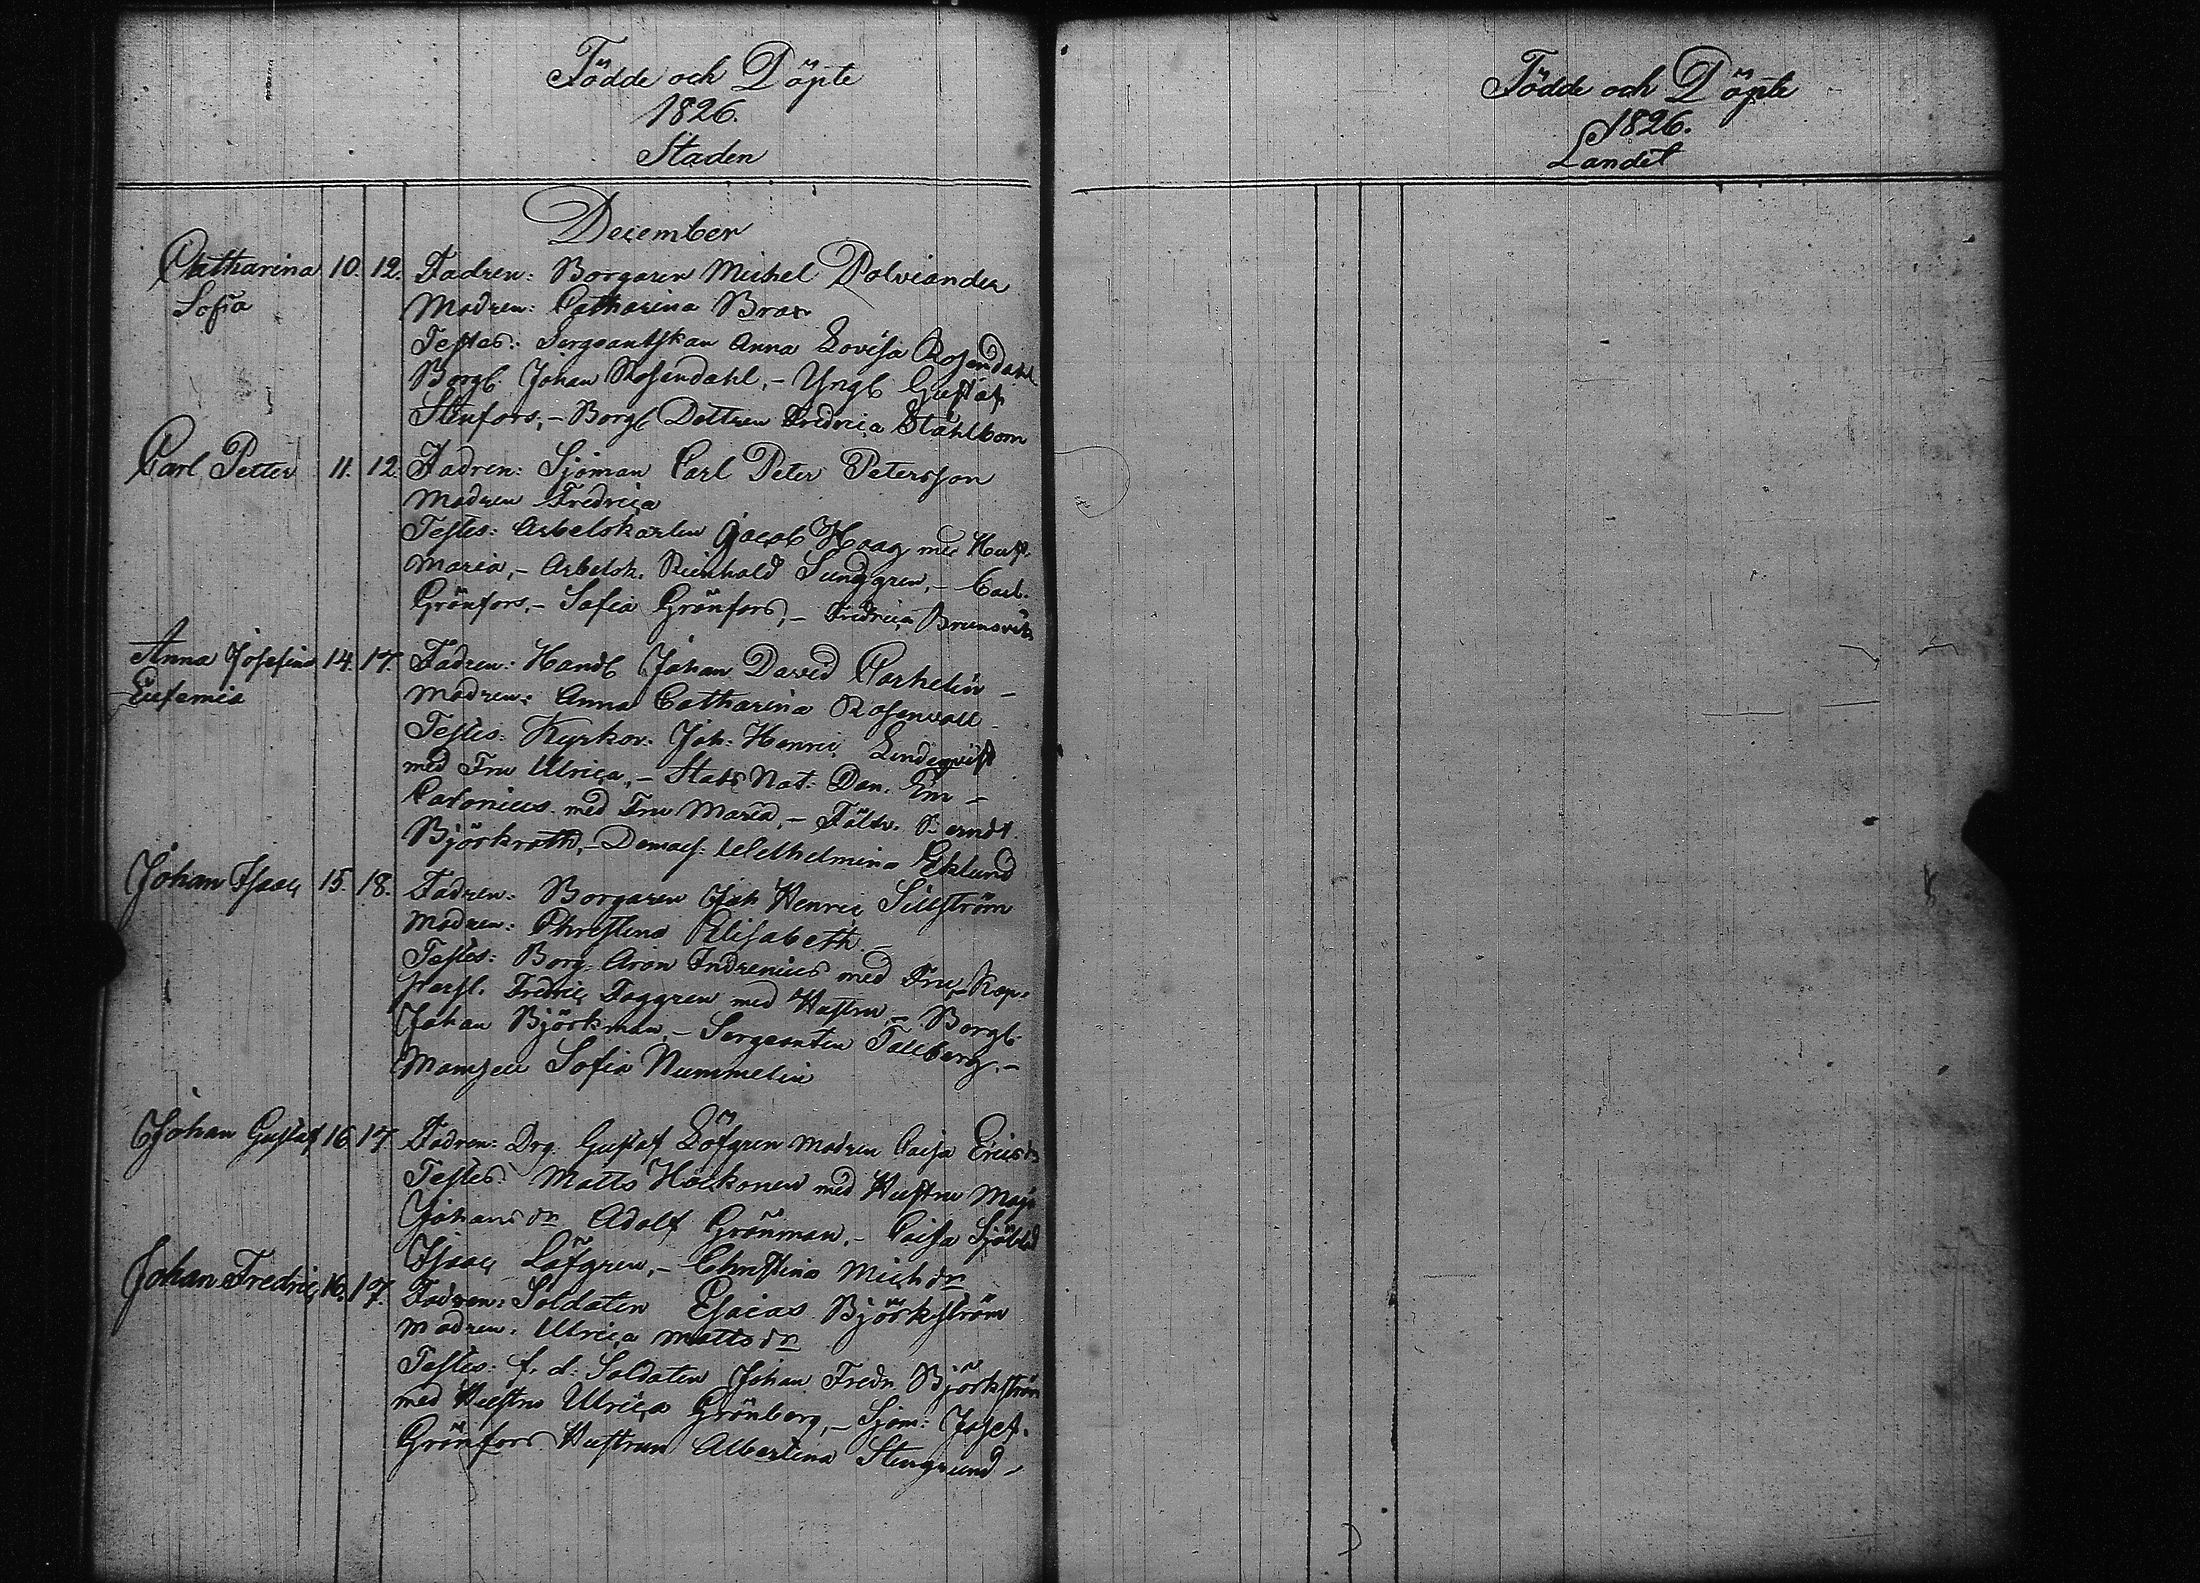 Födde och Döpte
1826.
Staden
December
Catharina 10. 12. Fadren: Borgaren Michel Polviander
Sofia Modren: Catharina Brax
Testes: Sergeantskan Anna Lovisa Rosendahl
Borgl. Johan Rosendahl, – Yngl Gustaf
Stenfors, – Borgl Dottren Fredrica Ståhlbom
Carl Petter 11. 12. Fadren: Sjöman Carl Peter Petersson
Modren Fredrica
Testes: Arbetskarlen Jacob Haag med Hust.
Maria, – Arbetsk. Reinhold Sundgren, – Carl
Grönfors, – Sofia Grönfors, – Fredrica
Anna Josefina 14. 17. Fadren: Handl Johan David Carhelin –
Eufemia Modren: Anna Catharina Rosenvall
Testes: Kyrkov. Joh. Henric Lindeqvist
med Fru Ulrica, – Stads Not. Dan. Em –
Calonius med Fru Maria, – Fältv. Berndt
Björkroth, – Demois: Wilhelmina Eklund
Johan Isaac 15. 18. Fadren: Borgaren Joh Henric Sillström
Modren: Christina Elisabeth –
Testes: Borg. Aron Indrenius med Fru, – Kop-
Fredric Foggren med Hustru, – Borgl.
Johan Björkman, – Sergeanten Tallberg, –
Mamsell Sofia Nummelin
Johan Gustaf 16. 17. Fadren: Drg. Gustaf Löfgren Modren Caisa Ericsdr
Testes: Matts Höckonen med Hustru Maja
Johansdr Adolf Grönman, – Caisa Sjöblad
Isaac Löfgren, – Christina Michdr
Johan Fredric 16. 17. Fadren: Soldaten Esaias Björkström
Modren: Ulrica Mattsdr
Testes: f. d. Soldaten Johan Fredr. Björkström
med Hustru Ulrica Grönberg, – Sjöm: Josef.
Grönfors Hustrun Albertina Stengrund –
Födde och Döpte
1826.
Landet